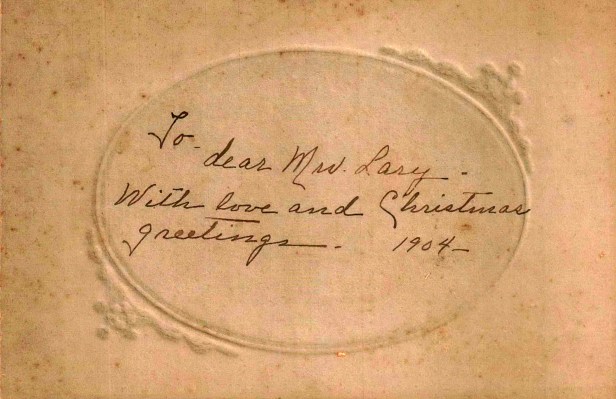 To
dear Mrs. Lary.
With love and Christmas
greetings. 1904